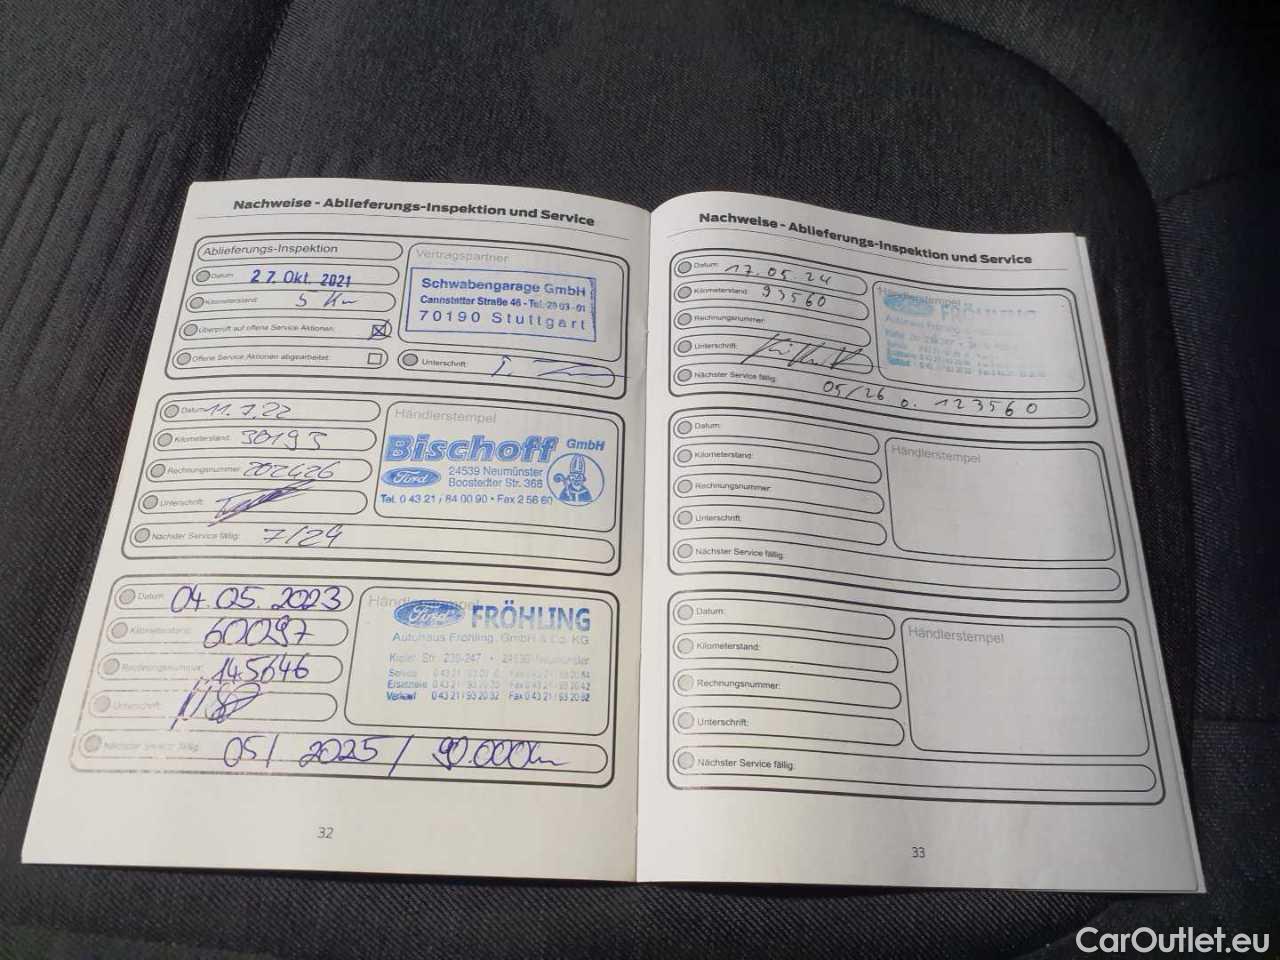 Nachweise - Ablieferungs-Inspektion und Service
Ablieferungs-Inspektion
Datum: 27. Okt. 2021
Kilometerstand: 5 km
Überprüft auf offene Service Aktionen:
Offene Service Aktionen abgearbeitet:
Vertragspartner
Schwabengarage GmbH
Cannstatter Straße 46 - Tel. 28 03-01
70190 Stuttgart
Unterschrift:
Datum: 11.7.22
Kilometerstand: 30193
Rechnungsnummer: 202426
Unterschrift:
Nächster Service fällig: 7/24
Händlerstempel
Bischoff GmbH
Ford
24539 Neumünster
Boostedter Str. 368
Tel. 0 43 21 / 84 00 90 • Fax 2 56 60
Datum: 04.05.2023
Kilometerstand: 60097
Rechnungsnummer: 145646
Unterschrift:
Nächster Service fällig: 05/2025/90.000km
Händlerstempel
Ford FRÖHLING
Autohaus Fröhling, GmbH & Co. KG
Kieler Str. 239-247 • 24536 Neumünster
Service
Ersatzteile
Verkauf 0 43 21 / 93 20 32 Fax 0 43 21 / 93 20 82
32
Nachweise - Ablieferungs-Inspektion und Service
Datum: 17.05.24
Kilometerstand: 93560
Rechnungsnummer:
Unterschrift:
Nächster Service fällig: 05/26 o. 123560
Händlerstempel
Ford FRÖHLING
Autohaus Fröhling
Datum:
Kilometerstand:
Rechnungsnummer:
Unterschrift:
Nächster Service fällig:
Händlerstempel
Datum:
Kilometerstand:
Rechnungsnummer:
Unterschrift:
Nächster Service fällig:
Händlerstempel
33
CarOutlet.eu